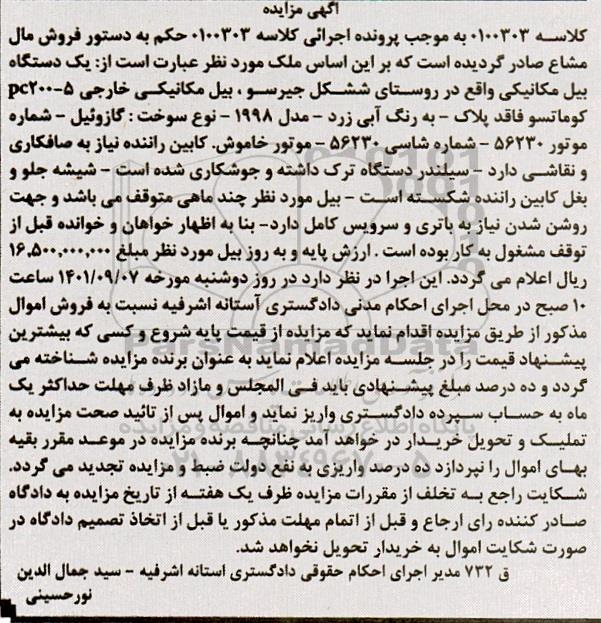 آگهی مزایده
کلاسه ۰۱۰۰۳۰۳ به موجب پرونده اجرائی کلاسه ۰۱۰۰۳۰۳ حکم به دستور فروش مال
مشاع صادر گردیده است که بر این اساس ملک مورد نظر عبارت است از: یک دستگاه
بیل مکانیکی واقع در روستای ششکل جیرسو ، بیل مکانیکی خارجی pc۲۰۰-۵
کوماتسو فاقد پلاک - به رنگ آبی زرد - مدل ۱۹۹۸ - نوع سوخت : گازوئیل - شماره
موتور ۵۶۲۳۰ - شماره شاسی ۵۶۲۳۰ - موتور خاموش. کابین راننده نیاز به صافکاری
و نقاشی دارد - سیلندر دستگاه ترک داشته و جوشکاری شده است - شیشه جلو و
بغل کابین راننده شکسته است - بیل مورد نظر چند ماهی متوقف می باشد و جهت
روشن شدن نیاز به باتری و سرویس کامل دارد- بنا به اظهار خواهان و خوانده قبل از
توقف مشغول به کار بوده است . ارزش پایه و به روز بیل مورد نظر مبلغ ۱۶,۵۰۰,۰۰۰,۰۰۰
ریال اعلام می گردد. این اجرا در نظر دارد در روز دوشنبه مورخه ۱۴۰۱/۰۹/۰۷ ساعت
۱۰ صبح در محل اجرای احکام مدنی دادگستری آستانه اشرفیه نسبت به فروش اموال
مذکور از طریق مزایده اقدام نماید که مزایده از قیمت پایه شروع و کسی که بیشترین
پیشنهاد قیمت را در جلسه مزایده اعلام نماید به عنوان برنده مزایده شناخته می
گردد و ده درصد مبلغ پیشنهادی باید فی المجلس و مازاد ظرف مهلت حداکثر یک
ماه به حساب سپرده دادگستری واریز نماید و اموال پس از تائید صحت مزایده به
تملیک و تحویل خریدار در خواهد آمد چنانچه برنده مزایده در موعد مقرر بقیه
بهای اموال را نپردازد ده درصد واریزی به نفع دولت ضبط و مزایده تجدید می گردد.
شکایت راجع به تخلف از مقررات مزایده ظرف یک هفته از تاریخ مزایده به دادگاه
صادر کننده رای ارجاع و قبل از اتمام مهلت مذکور یا قبل از اتخاذ تصمیم دادگاه در
صورت شکایت اموال به خریدار تحویل نخواهد شد.
ق ۷۳۲ مدیر اجرای احکام حقوقی دادگستری استانه اشرفیه - سید جمال الدین
نورحسینی